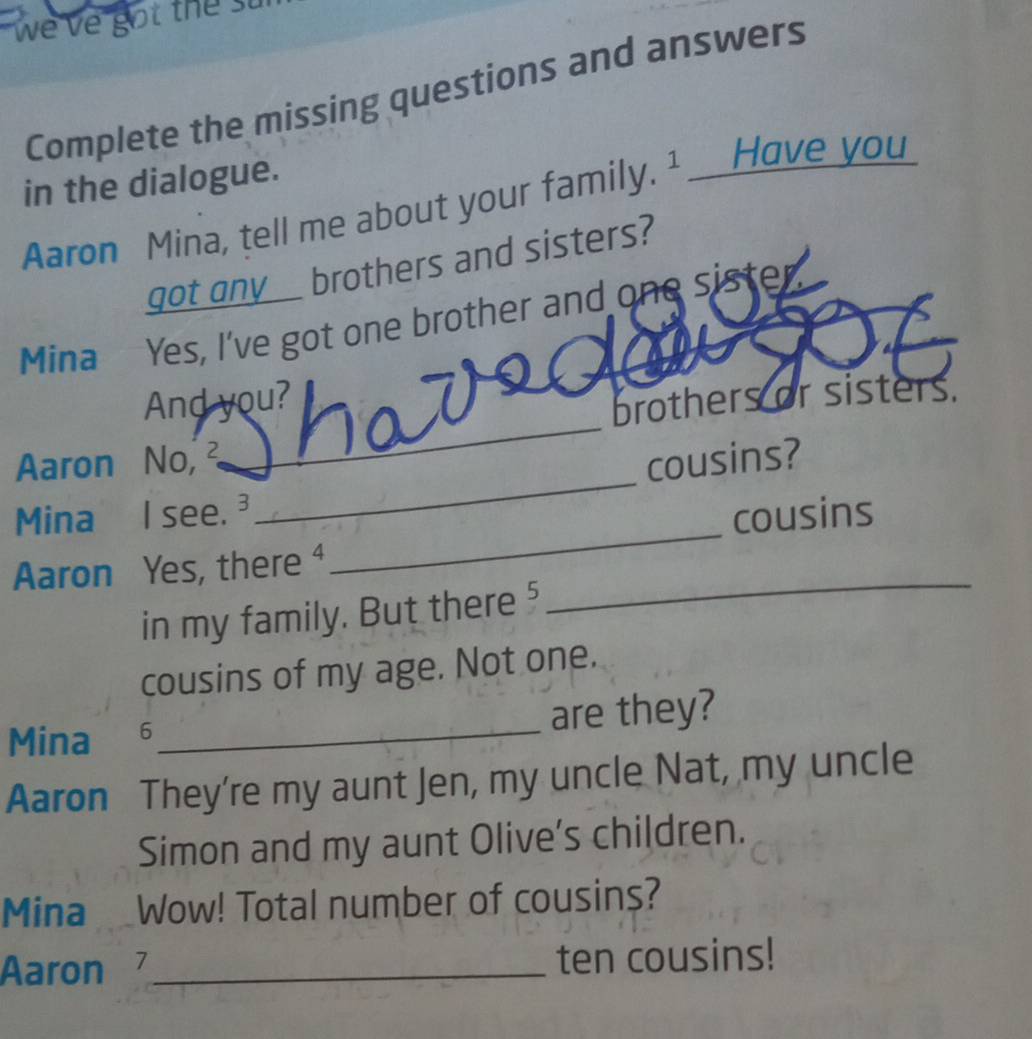 we've got the
Complete the missing questions and answers
in the dialogue.
Aaron Mina, tell me about your family. 1 ____ Have you
got any ____ brothers and sisters?
Mina Yes, I've got one brother and one sister.
And you?
Aaron No, 2 I have got brothers or sisters.
Mina I see. 3 ____ cousins?
Aaron Yes, there 4 ____ cousins
in my family. But there 5 ____
cousins of my age. Not one.
Mina 6 ____ are they?
Aaron They're my aunt Jen, my uncle Nat, my uncle
Simon and my aunt Olive's children.
Mina Wow! Total number of cousins?
Aaron 7 ____ ten cousins!